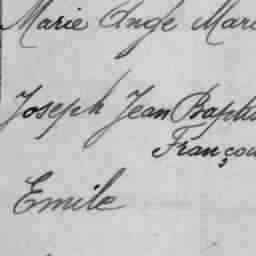 Marie Ange Mari
Joseph Jean Baptis
Françoi
Emile